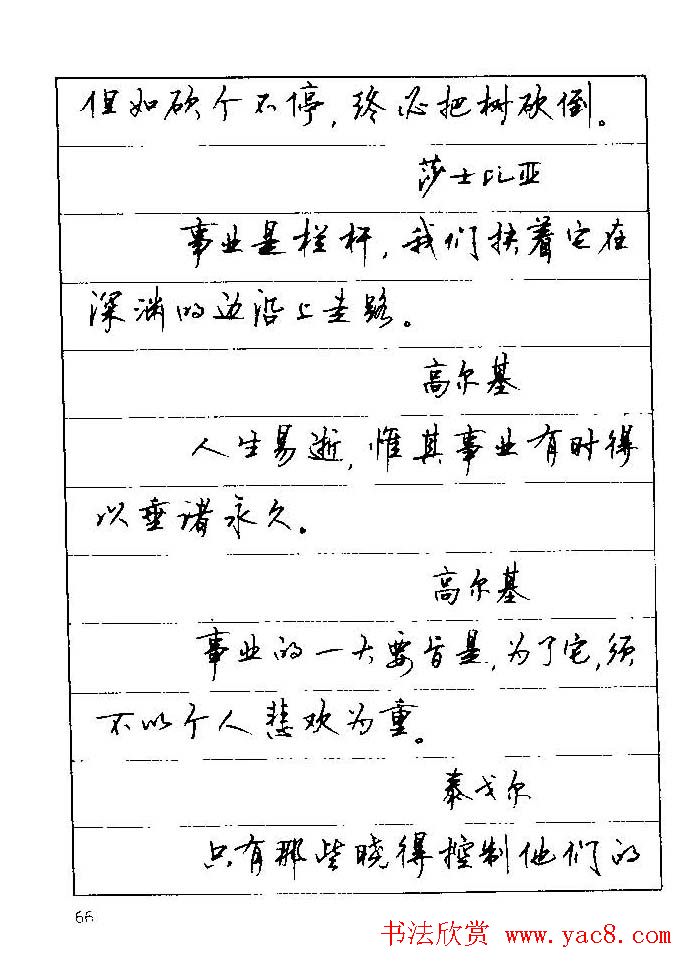 但如砍个不停，终必把树砍倒。
莎士比亚
事业是栏杆，我们扶着它在
深渊的边沿上走路。
高尔基
人生易逝，惟其事业有时得
以垂诸永久。
高尔基
事业的一大要旨是，为了它，须
不以个人悲欢为重。
泰戈尔
只有那些晓得控制他们的
66
书法欣赏 www.yac8.com